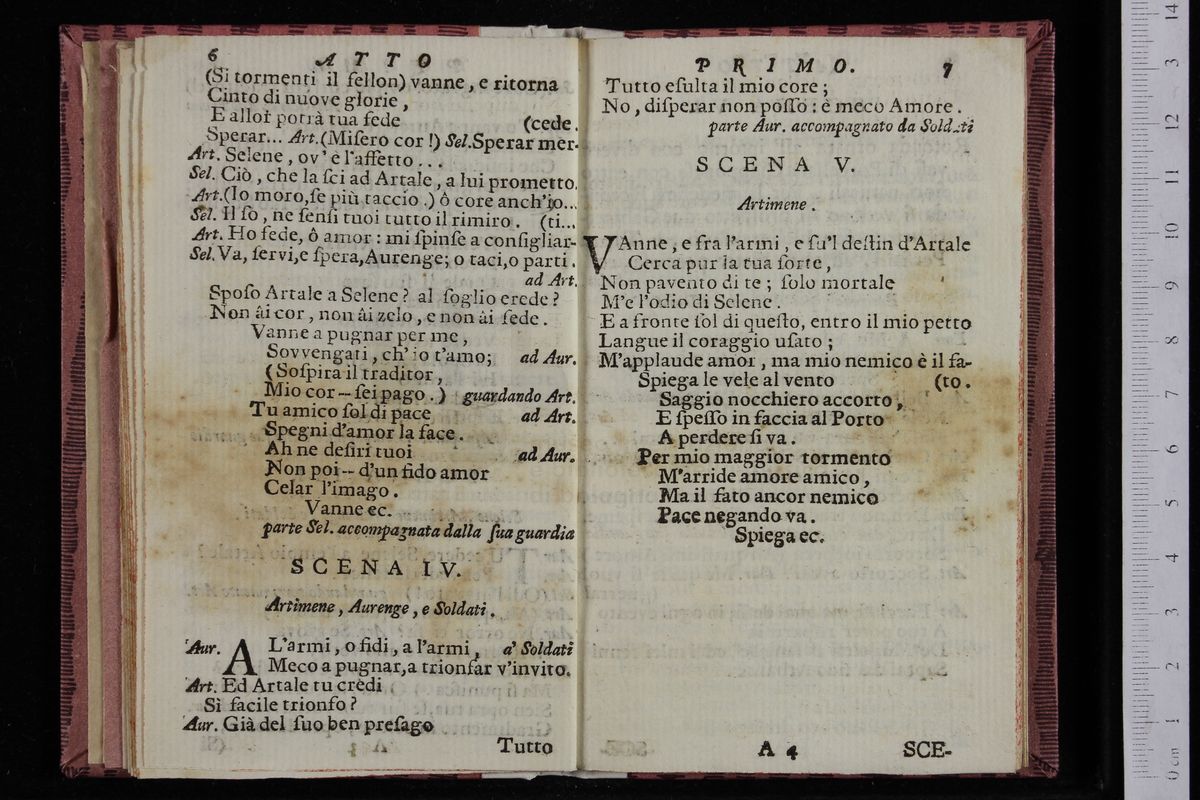 6 ATTO
(Si tormenti il fellon) vanne, e ritorna
Cinto di nuove glorie,
E allor potrà tua fede (cede.
Sperar... Art. (Misero cor!) Sel. Sperar mer-
Art. Selene, ov' è l'affetto...
Sel. Ciò, che la ſci ad Artale, a lui prometto.
Art. (Io moro, ſe più taccio.) ô core anch'io...
Sel. Il ſò, ne ſenſi tuoi tutto il rimiro. (ti...
Art. Ho fede, ô amor: mi ſpinſe a conſigliar-
Sel. Va, ſervi, e ſpera, Aurenge; o taci, o parti.
ad Art.
Spoſo Artale a Selene? al ſoglio erede?
Non âi cor, non âi zelo, e non âi fede.
Vanne a pugnar per me,
Sovvengati, ch'io t'amo; ad Aur.
(Soſpira il traditor,
Mio cor -- ſei pago.) guardando Art.
Tu amico ſol di pace ad Art.
Spegni d'amor la face.
Ah ne deſiri tuoi ad Aur.
Non poi -- d'un fido amor
Celar l'imago.
Vanne ec.
parte Sel. accompagnata dalla ſua guardia
SCENA IV.
Artimene, Aurenge, e Soldati.
Aur. AL'armi, o fidi, a l'armi, a' Soldati
Meco a pugnar, a trionfar v'invito.
Art. Ed Artale tu credi
Sì facile trionfo?
Aur. Già del ſuo ben preſago
Tutto
PRIMO. 7
Tutto eſulta il mio core;
No, diſperar non poſſo: è meco Amore.
parte Aur. accompagnato da Soldati
SCENA V.
Artimene.
VAnne, e fra l'armi, e ſu'l deſtin d'Artale
Cerca pur la tua ſorte,
Non pavento di te; ſolo mortale
M'e l'odio di Selene.
E a fronte ſol di queſto, entro il mio petto
Langue il coraggio uſato;
M'applaude amor, ma mio nemico è il fa-
Spiega le vele al vento (to.
Saggio nocchiero accorto,
E ſpeſſo in faccia al Porto
A perdere ſi va.
Per mio maggior tormento
M'arride amore amico,
Ma il fato ancor nemico
Pace negando va.
Spiega ec.
A 4 SCE-
0 cm 1 2 3 4 5 6 7 8 9 10 11 12 13 14